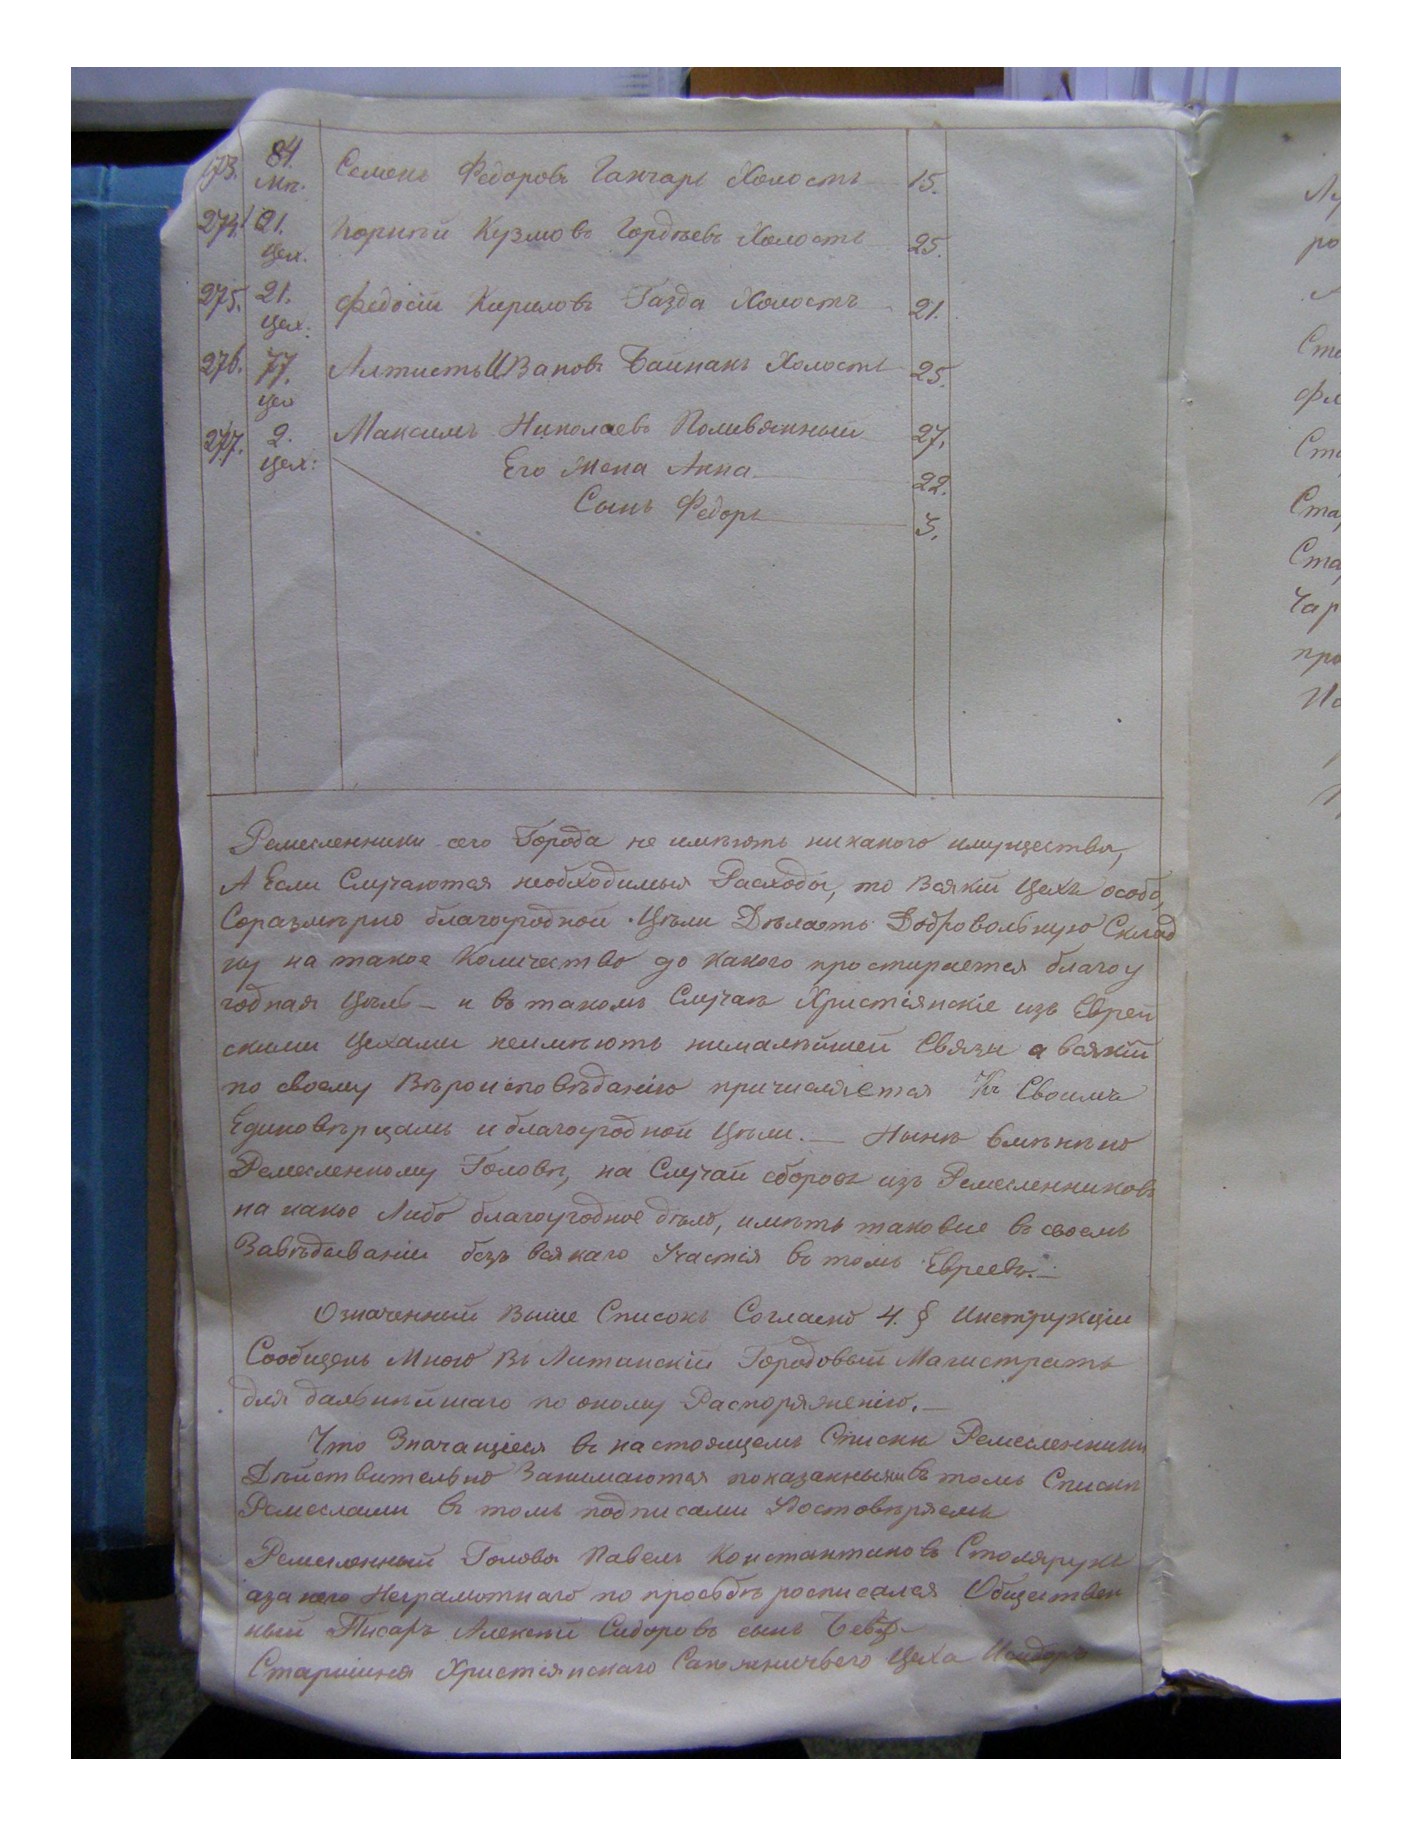 273. 84. Мп. Семенъ Федоровъ Ганчаръ Холостъ 15.
274. 21. Цех. Корнѣй Кузмовъ Гордѣевъ Холостъ 25.
275. 21. Цех. Федосій Кириловъ Газда Холостъ 21.
276. 77. Цех Ивановъ Байнакъ Холостъ 25.
277. 2. Цех: Максимъ Николаевъ Поливяжный 27.
Его Жена Анна 22.
Сынъ Федоръ 3.
Ремесленники сего Города не имѣютъ никакого имущества,
А Если Случаются необходимыя Расходы, то Всякій Цехъ особо,
Соразмѣрно благоугодной Цѣли Дѣлаетъ Добровольную Склад
ку на такое Количество до какого простирается благоу
годная Цѣль – и въ такомъ Случаѣ Христіянскіе изъ Еврей
скими Цехами неимѣютъ нималѣйшей Связи а всякій
по своему Вѣроисповѣданію причисляется Къ Своимъ
Единовѣрцамъ и благоугодной Цѣли. — Нынѣ вмѣнено
Ремесленному Головѣ, на Случай сборовъ изъ Ремесленниковъ
на какое Либо благоугодное дѣло, имѣть таковые въ своемъ
Завѣдываніи безъ всякаго Участія въ томъ Евреевъ. —
Означенный Выше Списокъ Согласно 4. § Инструкціи
Сообщенъ Мною Въ Литинскій Городовый Магистратъ
для дальнѣйшаго по оному Распоряженію. —
Что Значащіеся въ настоящемъ Спискѣ Ремесленники
Дѣйствительно Занимаются показанными въ томъ Спискѣ
Ремеслами въ томъ подписами Удостовѣряемъ
Ремесленный Голова Павелъ Константиновъ Столярукъ
а за него Неграмотнаго по прозьбѣ росписался Обществен
ный Писарь Алексѣй Сидоровъ сынъ
Старшина Христіянскаго Сапожничьего Цеха Исидоръ